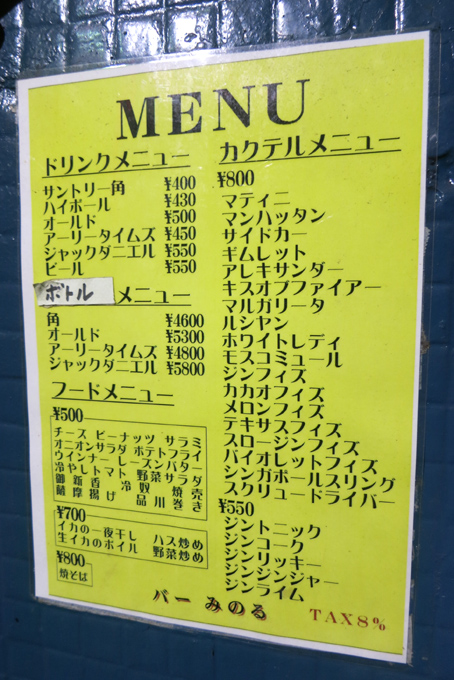 MENU
ドリンクメニュー
サントリー角 ¥400
ハイボール ¥430
オールド ¥500
アーリータイムズ ¥450
ジャックダニエル ¥550
ビール ¥550
ボトル メニュー
角 ¥4600
オールド ¥5300
アーリータイムズ ¥4800
ジャックダニエル ¥5800
フードメニュー
¥500
チーズ ピーナッツ サラミ
オニオンサラダ ポテトフライ
ウインナー レーズンバター
冷やしトマト 野菜サラダ
御新香 冷奴 焼売
薩摩揚げ 品川巻き
¥700
イカの一夜干し ハス炒め
生イカのボイル 野菜炒め
¥800
焼そば
カクテルメニュー
¥800
マティニ
マンハッタン
サイドカー
ギムレット
アレキサンダー
キスオブファイアー
マルガリータ
ルシヤン
ホワイトレディ
モスコミュール
ジンフィズ
カカオフィズ
メロンフィズ
テキサスフィズ
スロージンフィズ
バイオレットフィズ
シンガポールスリング
スクリュードライバー
¥550
ジントニック
ジンコーク
ジンリッキー
ジンジンジャー
ジンライム
バー みのる
TAX8%